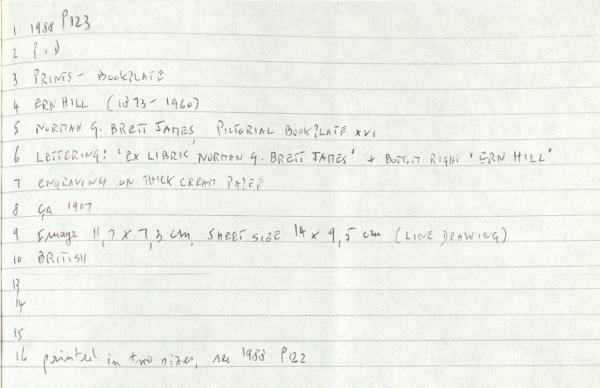 1 1988 P123
2 P v D
3 PRINTS - BOOKPLATE
4 ERN HILL (1873-1960)
5 NORMAN G. BRETT JAMES, PICTORIAL BOOKPLATE XVI
6 LETTERING: 'EX LIBRIS NORMAN G. BRETT JAMES' + BOTTOM RIGHT 'ERN HILL'
7 ENGRAVING ON THICK CREAM PAPER
8 ca 1907
9 Image 11,7 x 7,3 cm, SHEET SIZE 14 x 9,5 cm (LINE DRAWING)
10 BRITISH
13
14
15
16 printed in two sizes, see 1988 P122